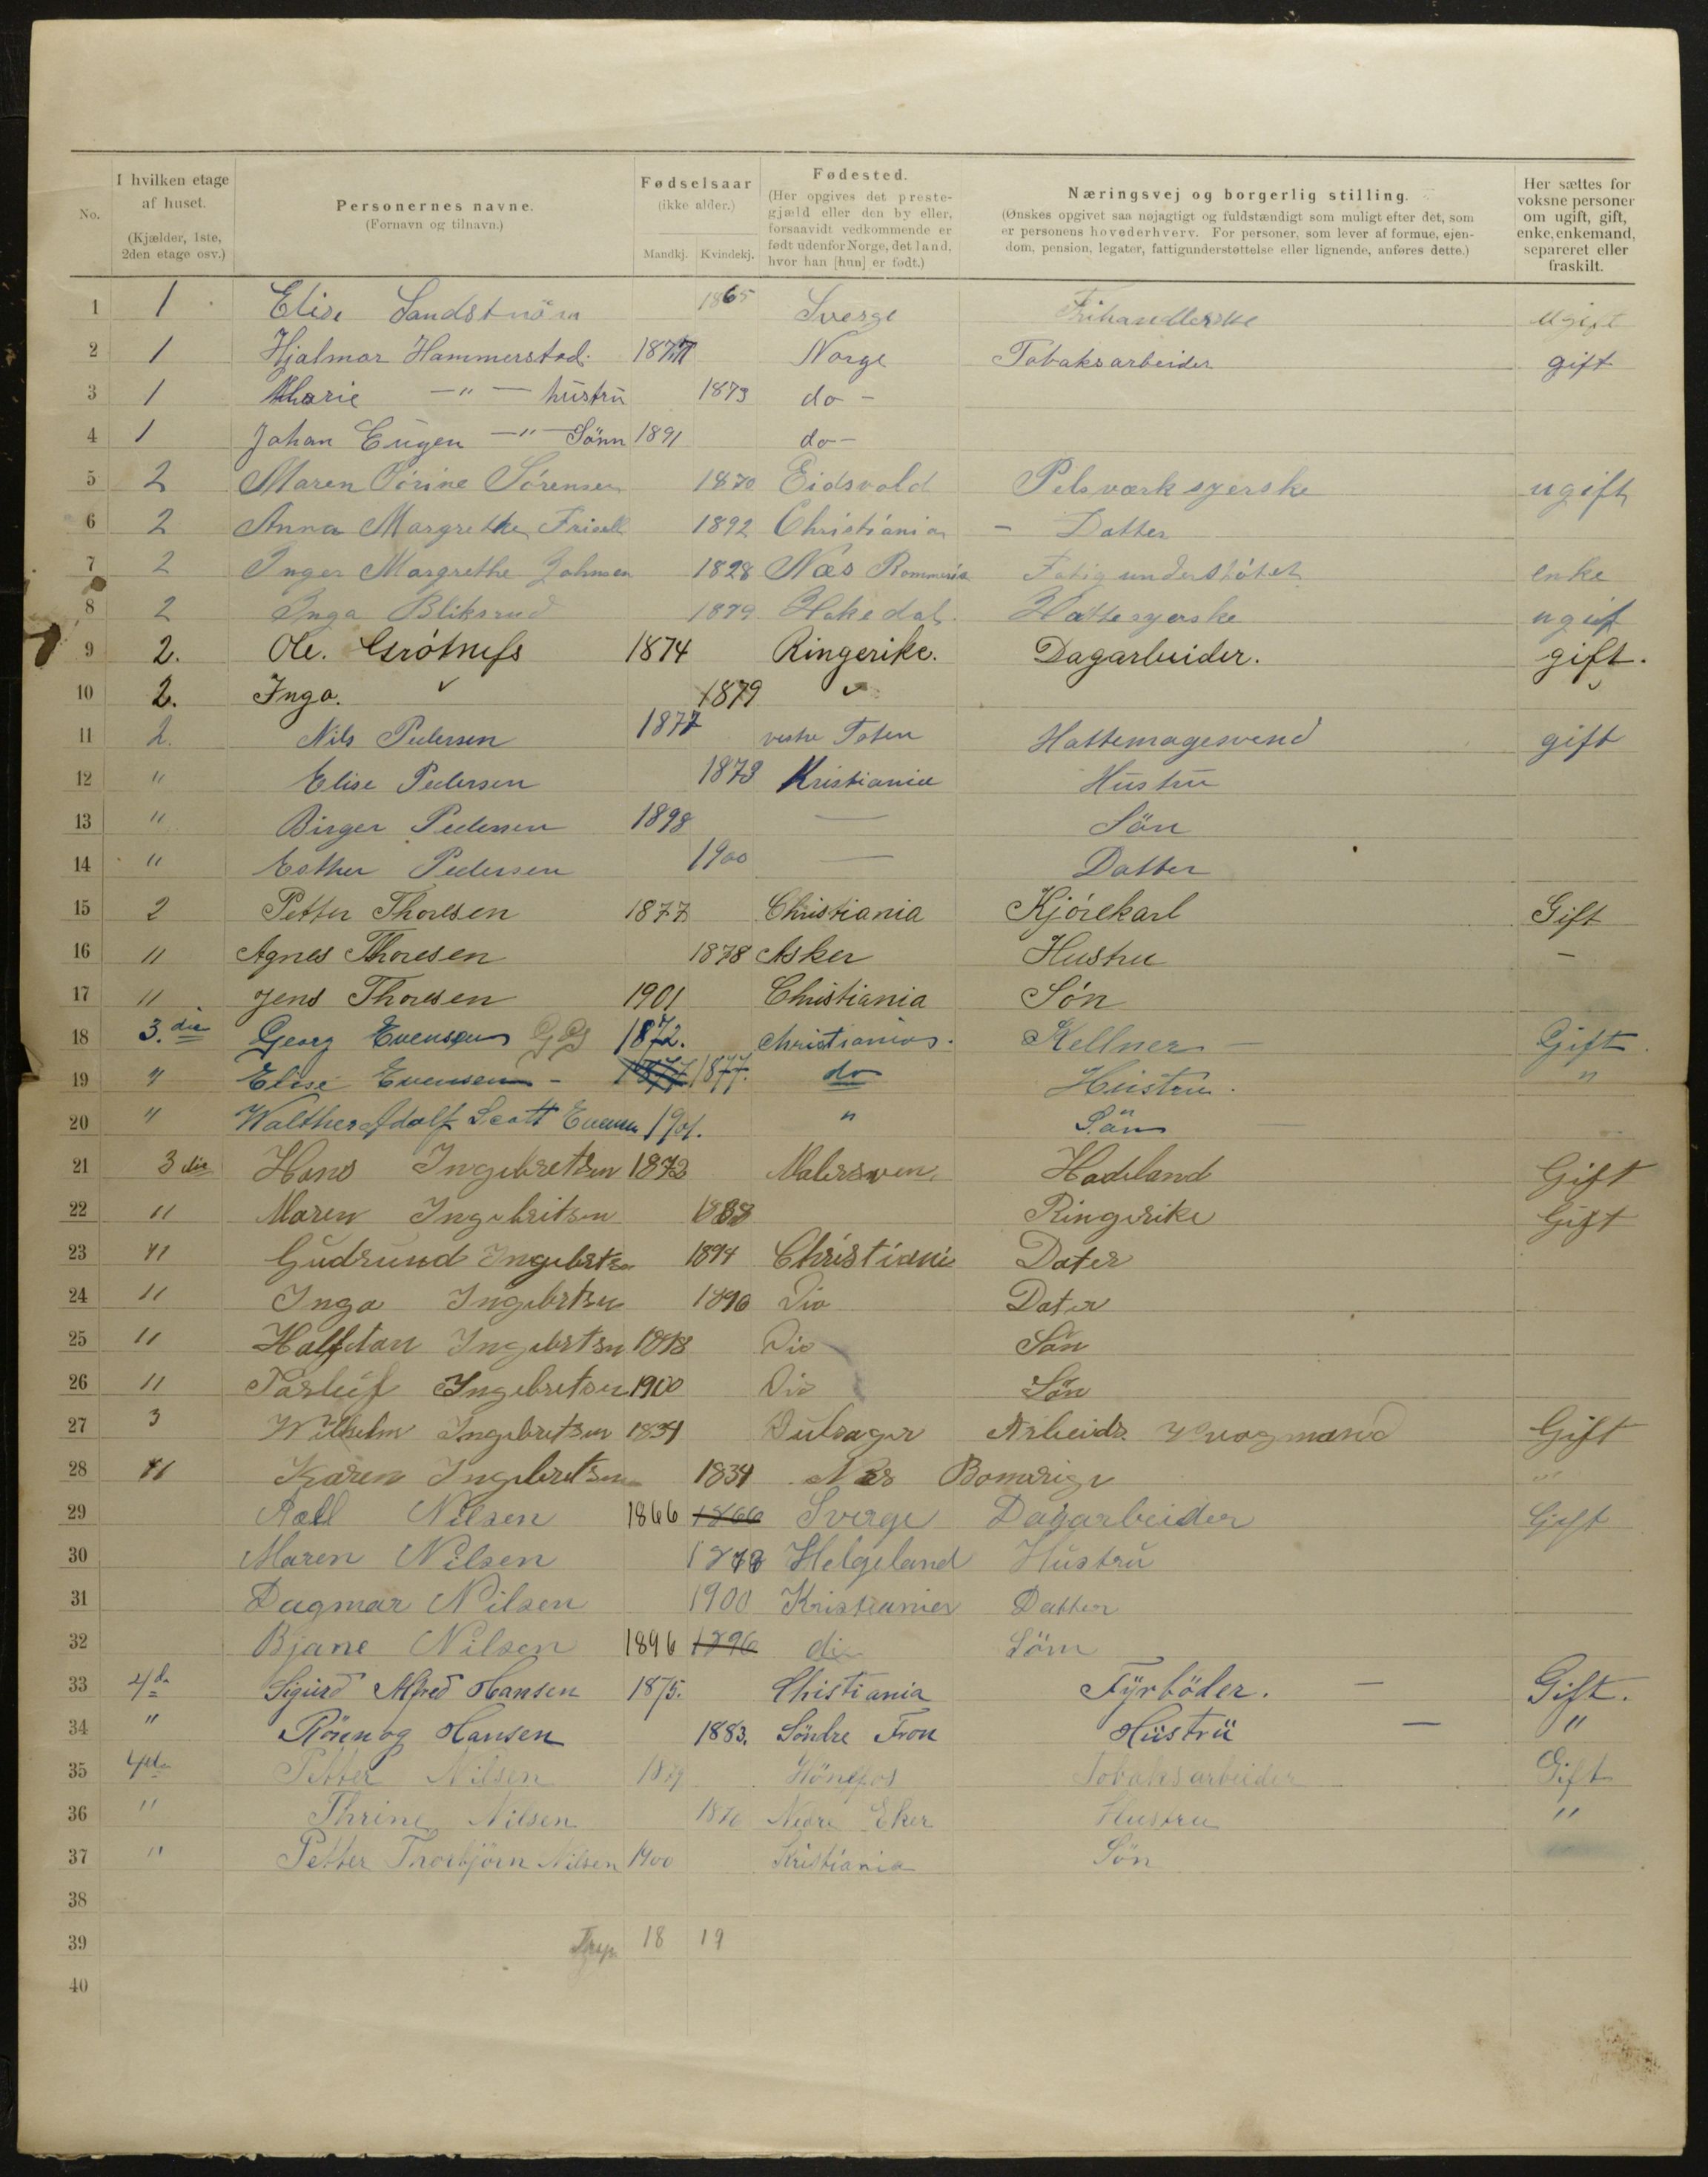 No.
I hvilken etage af huset. (Kjælder, 1ste, 2den etage osv.)
Personernes navne. (Fornavn og tilnavn.)
Fødselsaar (ikke alder.) Mandkj. Kvindekj.
Fødested. (Her opgives det prestegjæld eller den by eller, forsaavidt vedkommende er født udenfor Norge, det land, hvor han [hun] er født.)
Næringsvej og borgerlig stilling. (Ønskes opgivet saa nøjagtigt og fuldstændigt som muligt efter det, som er personens hovederhverv. For personer, som lever af formue, ejendom, pension, legater, fattigunderstøttelse eller lignende, anføres dette.)
Her sættes for voksne personer om ugift, gift, enke, enkemand, separeret eller fraskilt.
1 1 Elise Sandström 1865 Sverge Frihandlerske ugift
2 1 Hjalmar Hammerstad. 1877 Norge Tobaksarbeider gift
3 1 Marie —"— hustru 1873 do -
4 1 Johan Eugen —"— Sönn 1891 do -
5 2 Maren Sørine Sörensen 1870 Eidsvold Pelsværk syerske ugift
6 2 Anna Margrethe Frisell 1892 Christiania - Datter
7 2 Inger Margrethe Johnsen 1828 Næs Rommerik Fatigunderstøtet enke
8 2 Inga Bliksrud 1879 Hakedal. Hattesyerske ugift
9 2. Ole. Grøtness 1874 Ringerike. Dagarbeider. gift.
10 2. Inga. " 1879 "
11 2. Nils Pedersen 1877 vestre Toten Hattemagesvend gift
12 " Elise Pedersen 1873 Kristiania Hustru
13 " Birger Pedersen 1898 — Sön
14 " Esther Pedersen 1900 — Datter
15 2 Petter Thoresen 1877 Christiania Kjørekarl Gift
16 " Agnes Thoresen 1878 Asker Hustru -
17 " Jens Thoresen 1901 Christiania Søn
18 3.die Georg Evensen 1872. Christiania. Kellner — Gift.
19 " Elise Evensen - 1877 1877. do Hustru. "
20 " Walther Adolf Scott Evensen 1901. " Sön
21 3die Hans Ingebretsen 1872 Malersven. Hadeland Gift
22 " Maren Ingebritsen Ringerike Gift
23 " Gudrund Ingebrtsen 1894 Christiani Dater
24 " Inga Ingebrtsen 1896 Dio Dater
25 " Halfdan Ingebrtsen 1898 Dio Sön
26 " Ingebretsen 1900 Dio Sön
27 3 Wilhelm Ingebretsen 1834 Arbeids Gift
28 " Karen Ingebretsen 1834 Næs Bomerige "
29 Nilsen 1866 1866 Sverge Dagarbeider Gift
30 Maren Nilsen 1878 Helgeland Hustru
31 Dagmar Nilsen 1900 Kristiania Datter
32 Bjane Nilsen 1896 1896 do Sönn
33 4de Sigurd Alfred Hansen 1875. Christiania Fyrböder. — Gift.
34 " Rönnog Hansen 1883. Söndre Fron Hustru — "
35 4de Petter Nilsen 1879 Hönefos Tobaksarbeider Gift
36 " Thrine Nilsen 1876 Nedre Eker Hustru "
37 " Petter Thorbjörn Nilsen 1900 Kristiania Sön
38
39 18 19
40